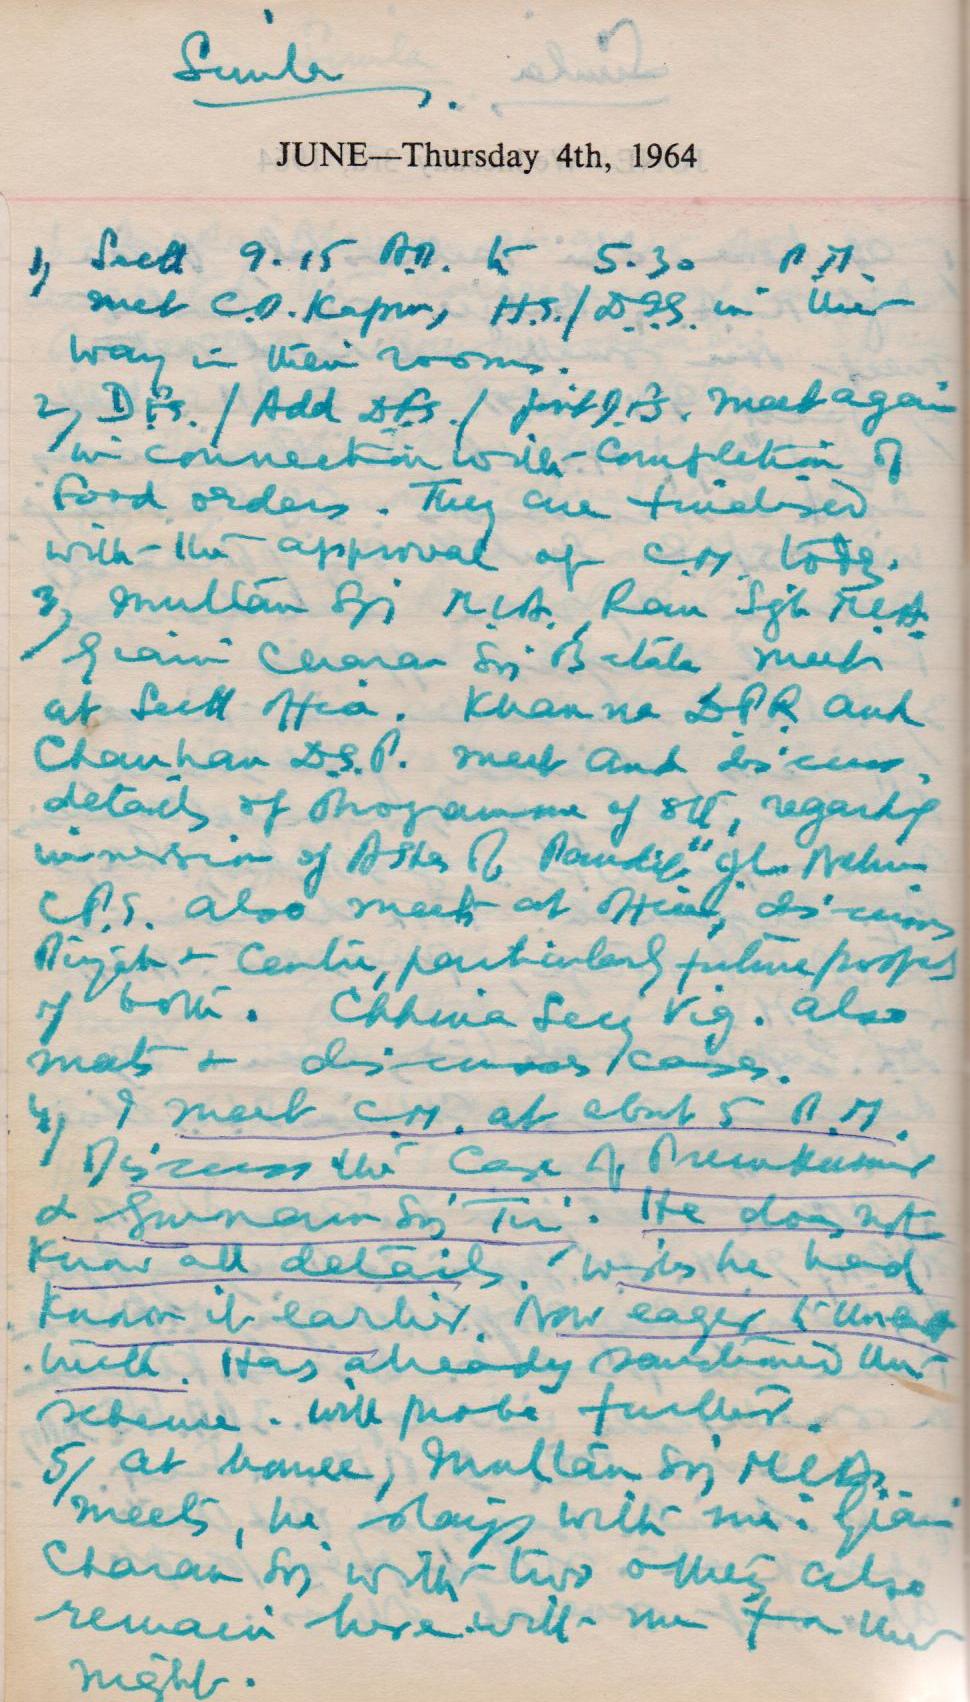 Simla.
JUNE—Thursday 4th, 1964
1, Sectt 9.15 A.M. to 5.30 P.M.
met C.P. Kapur, H.S./D.F.S. in their
way in their rooms.
2, D.F.S. / Add D.F.S. / Joint meet again
in connection with completion of
Food orders. They are finalised
with the approval of C.M. today.
3, Multan Sgj M.L.A., Ram Sgh M.L.A.
Giani Charan Sgj Batala meet
at Sectt Office. Khanna D.P.R. and
Chauhan D.S.P. meet and discuss,
details of Programme of 8th, regarding
immersion of Ashes of Pandit Jl. Nehru
C.P.S. also meets at Office, discusses
Punjab & Centre, particularly future prospects
of both. Chhina Secy Vig. also
meets & discusses cases.
4, I meet C.M. at about 5 P.M.
Discuss the case of Prem Kumar
& Gurnam Sgj Tir. He does not
know all details. Wishes he had
known it earlier. Now eager to
. Has already sanctioned their
scheme. Will probe further.
5/ at home, Multan Sgj M.L.A.
meets, he stays with me. Giani
Charan Sgj with two others also
remain here with me for the
night.